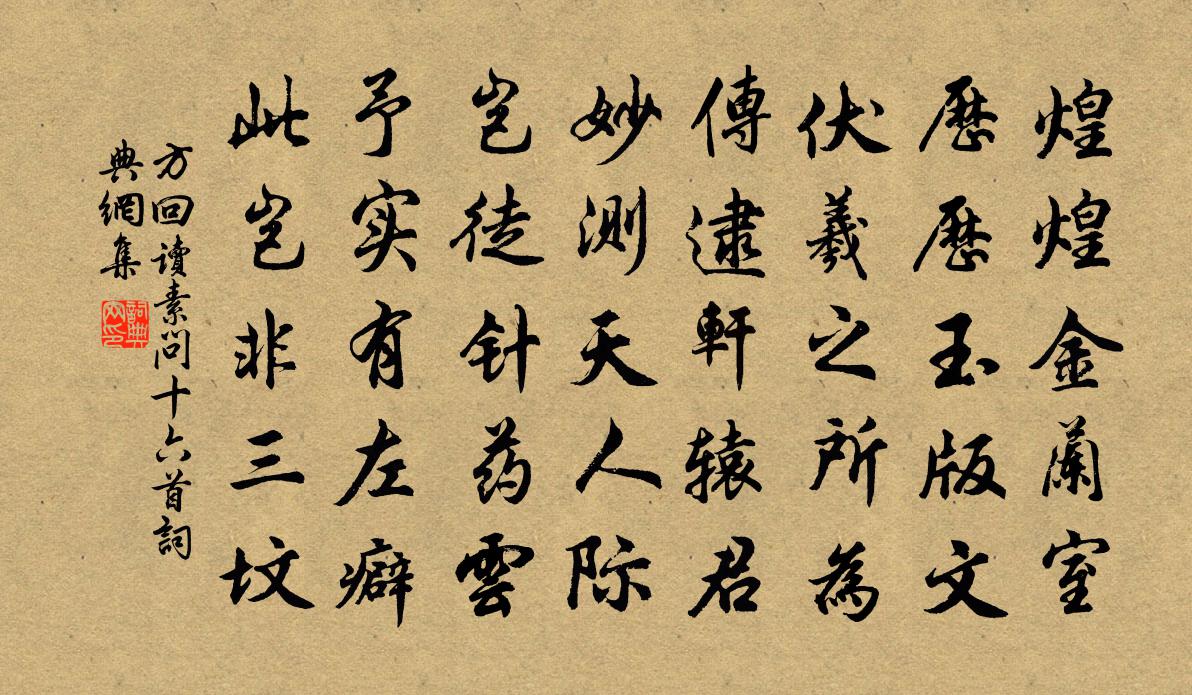 煌煌金蘭室
歷歷玉版文
伏羲之所為
傳逮軒辕君
妙测天人际
岂徒针药雲
予实有左癖
此岂非三坟
方回讀素問十六首詞
典網集
詞典网印